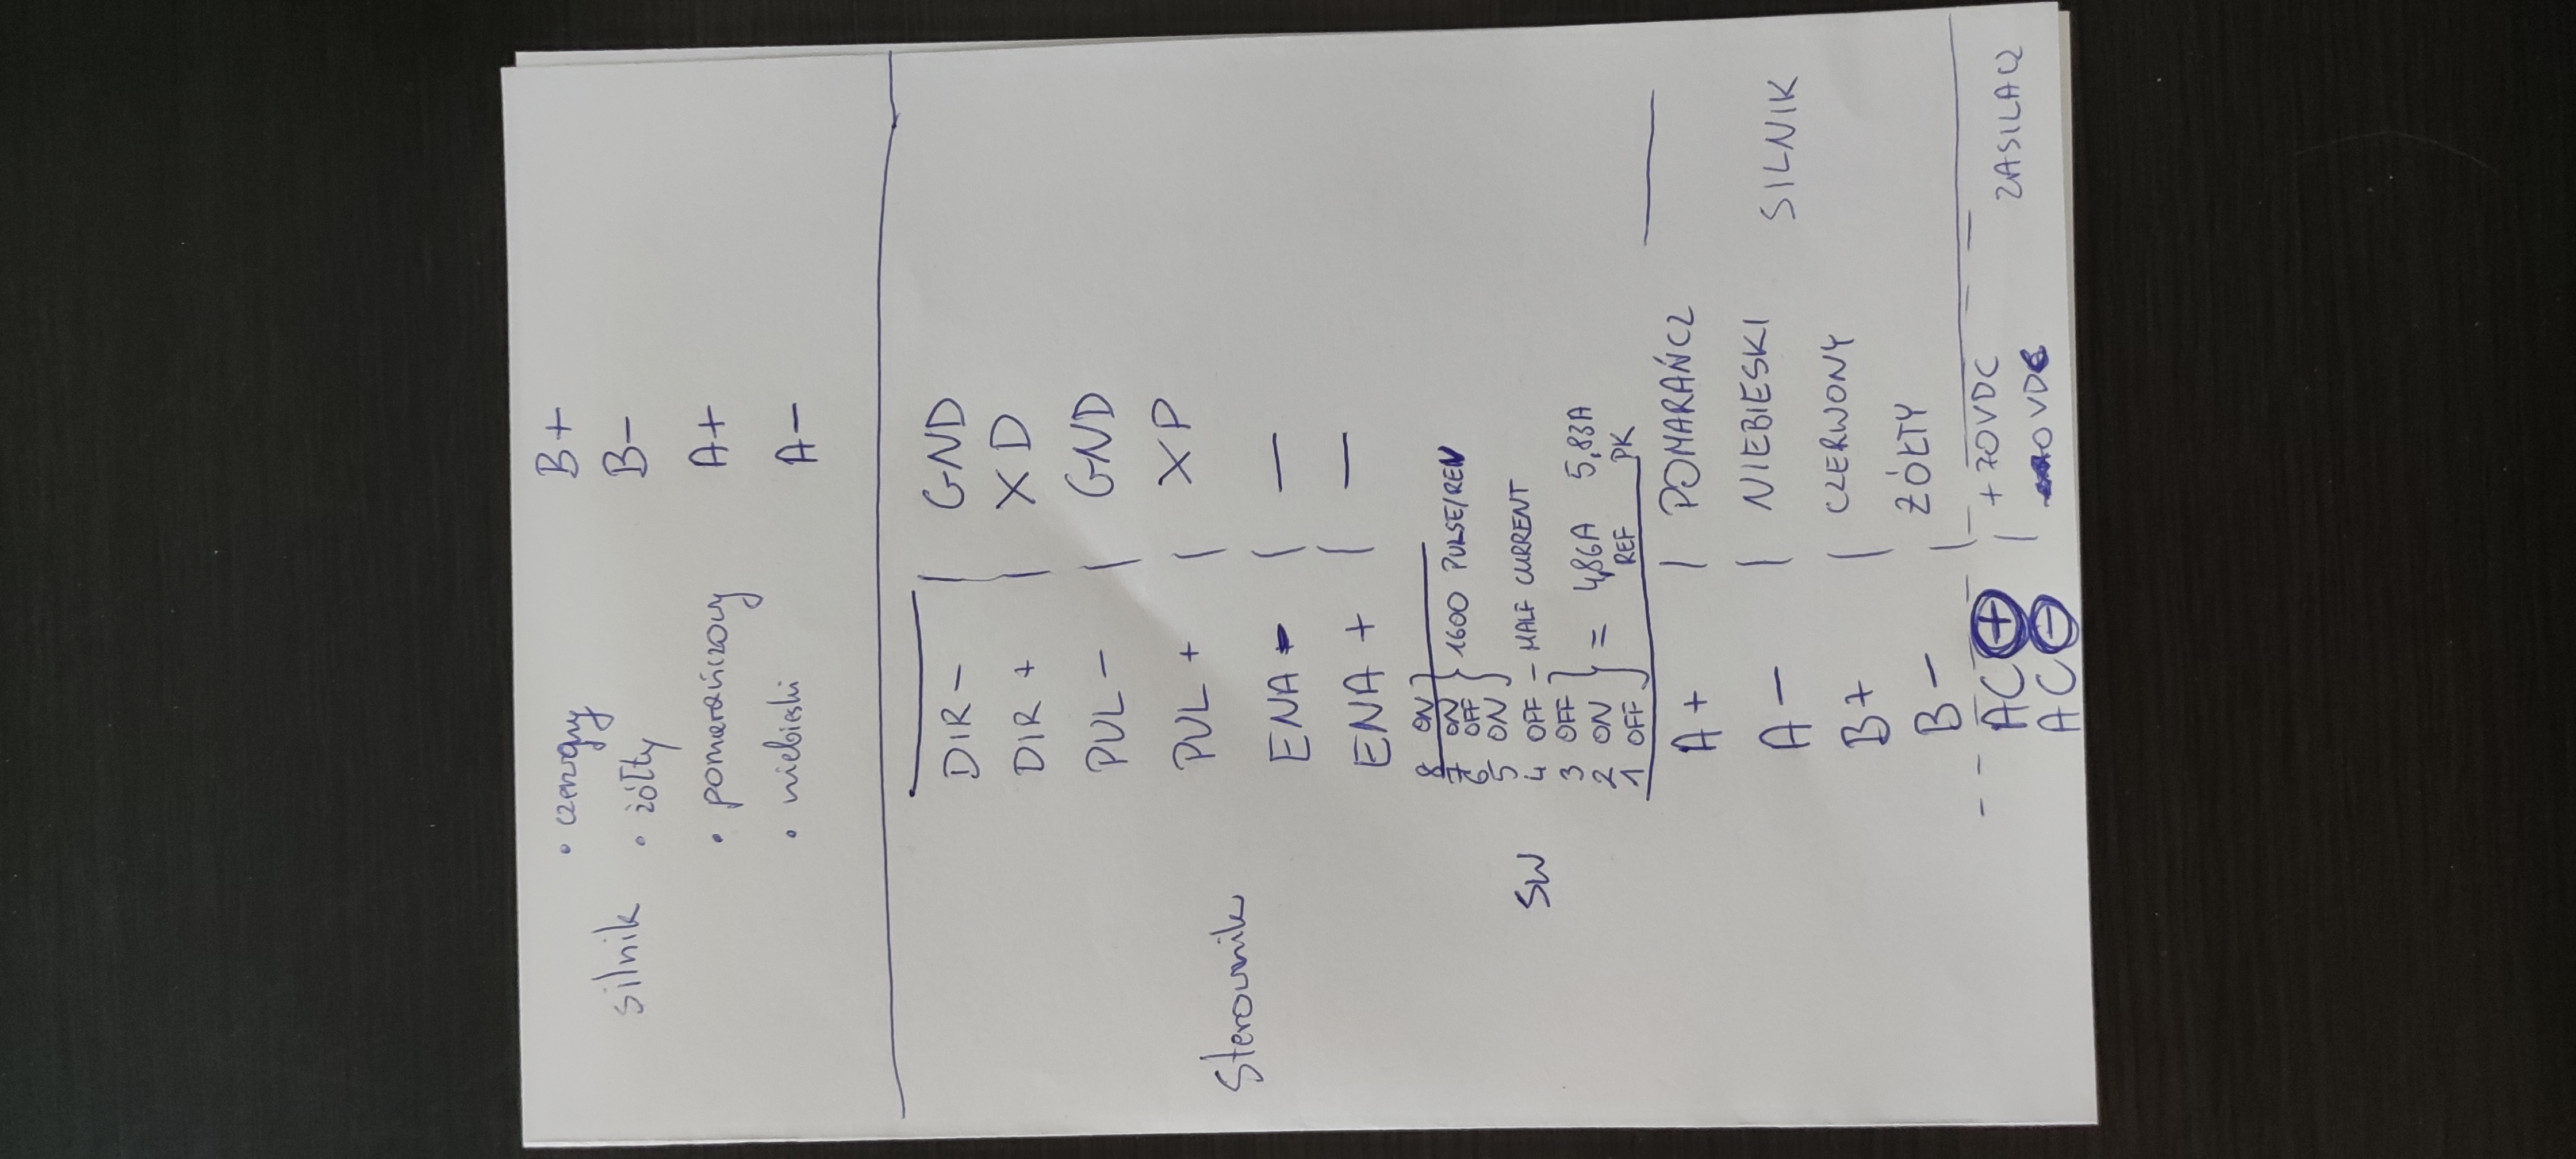 silnik
• czerwony B+
• żółty B-
• pomarańczowy A+
• niebieski A-
Sterownik
DIR - | GND
DIR + | XD
PUL - | GND
PUL + | XP
ENA - | —
ENA + | —
SW
8 ON
7 ON
6 OFF } 1600 PULSE/REV
5 ON
4 OFF - HALF CURRENT
3 OFF
2 ON } = 4,86A 5,83A
1 OFF REF PK
A+ | POMARAŃCZ
A- | NIEBIESKI SILNIK
B+ | CZERWONY
B- | ŻÓŁTY
AC + | +70VDC ZASILACZ
AC - | 0VDC